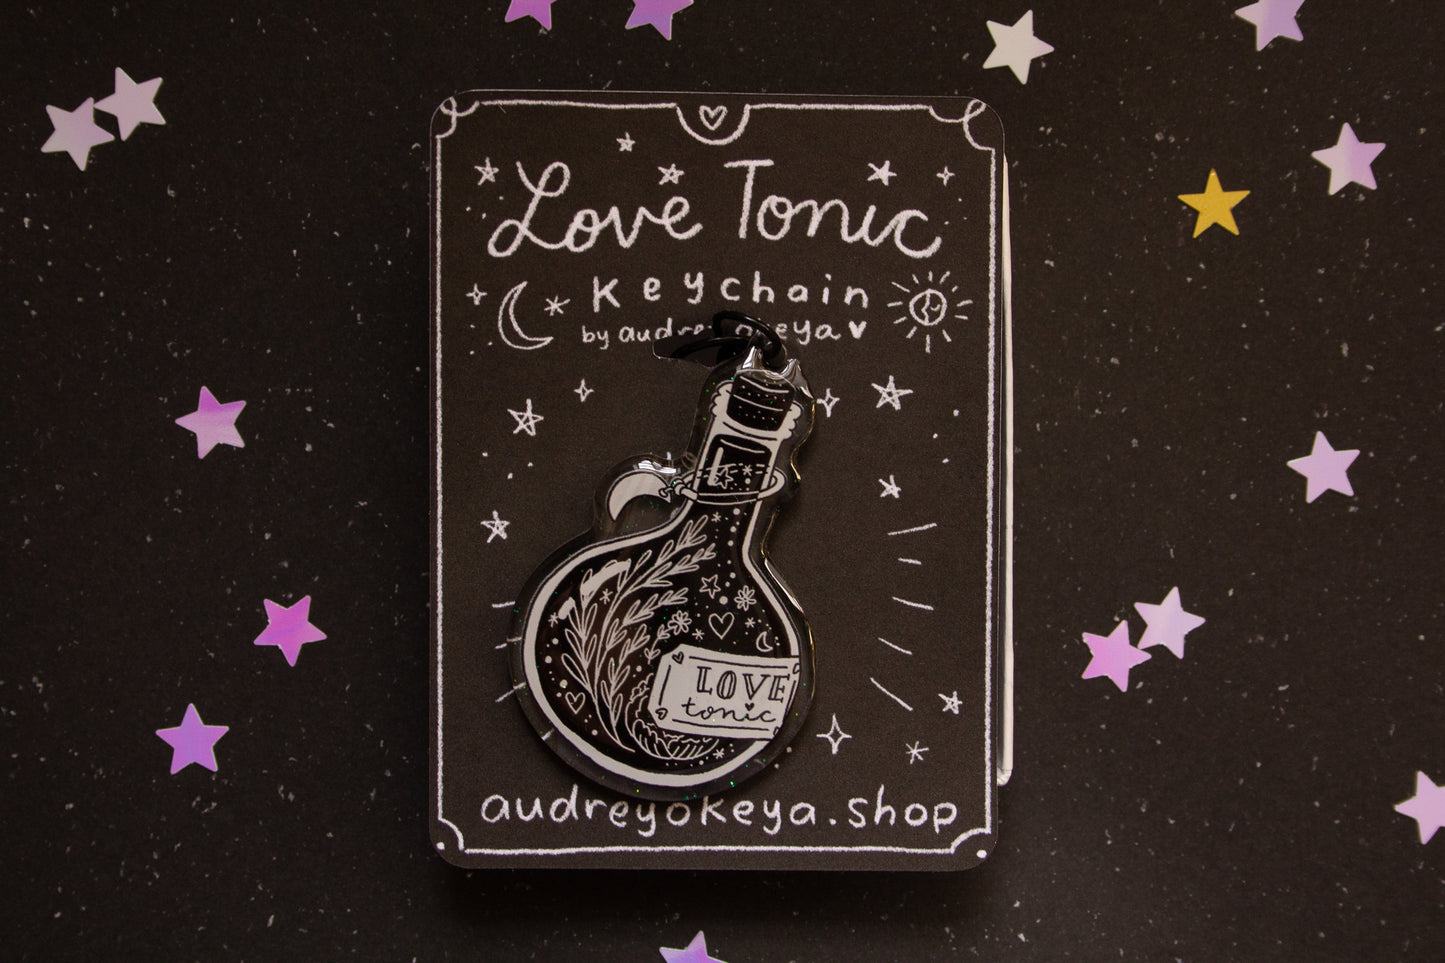 Love Tonic
keychain
by audreyokeya
LOVE
tonic
audreyokeya.shop